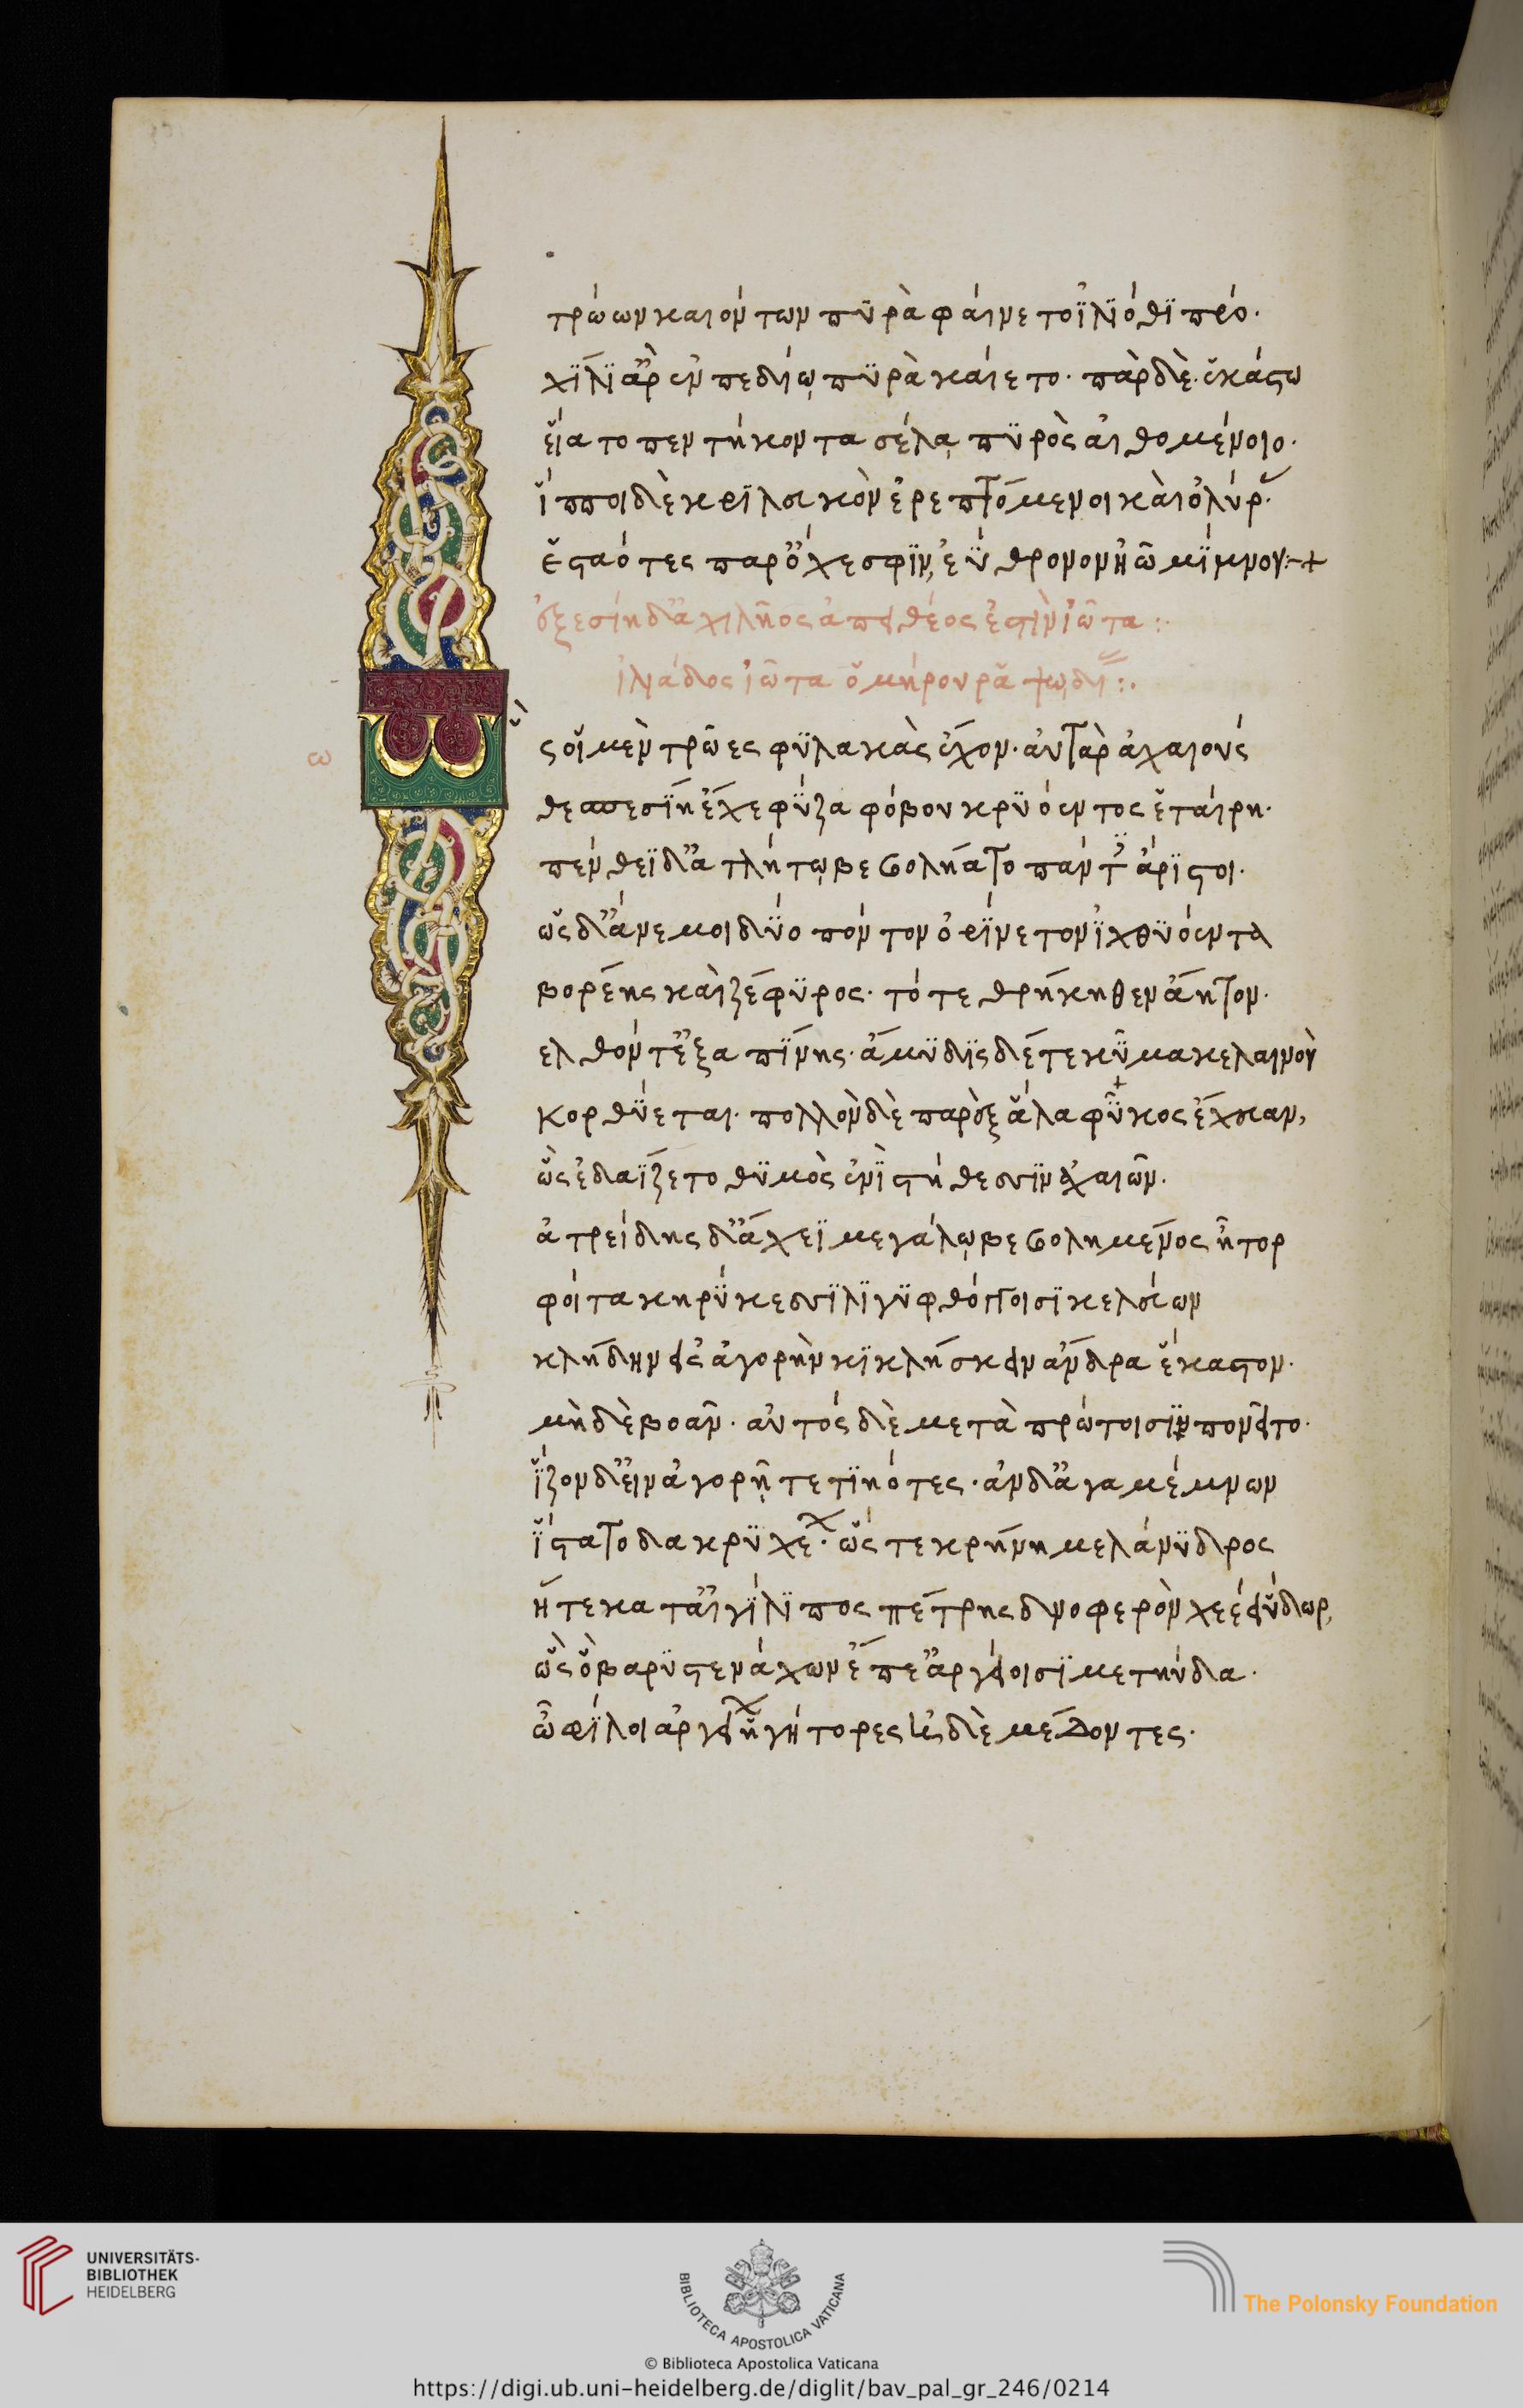 τρώων καιόντων πῦρὰ φάινετο ἰλιόθι πρό·
χίλι ἂρ ἐν πεδίῳ πυρὰ κάιετο· πὰρ δὲ· ἑκάστω
ἕιατο πεντήκοντα σέλᾳ πυρὸς ἀιθομένοιο·
ἵπποι δὲ κρῖ λευκὸν ἐρεπτόμενοι κὰι ὀλύρας·
ἑσταότες παρ' ὄχεσφιν, ἐΰθρονον ἠῶ μίμνον:-+
ἐξεσίη δ' ἀχιλῆος ἀπειθέος ἐστὶν ἰῶτα :
ἰλιάδος ἰῶτα ὁμήρου ραψωδι :.
ω
ὣς οἱ μὲν τρῶες φυλακὰς ἔχον· ἀυτὰρ ἀχαιοὺς
θεσπεσίη ἔχε φύζα φόβου κρυόεντος ἑταίρη·
πένθεϊ δ' ἀτλήτῳ βεβολήατο πάντες ἄριστοι·
ὡς δ' ἄνεμοι δύο πόντον ὀρίνετον ἰχθυόεντα
βορέης κὰι ζέφυρος· τό τε θρήκηθεν ἄητον·
ελθόντ' ἐξαπίνης· ἄμυδις δέ τε κῦμα κελαινὸν
κορθύεται· πολλὸν δὲ παρὲξ ἅλα φῦκος ἔχευαν,
ὣς ἐδαΐζετο θυμὸς ἐνὶ στήθεσσιν ἀχαιῶν·
ἀτρείδης δ' ἄχεϊ μεγάλῳ βεβολημένος ἦτορ
φοίτα κηρύκεσσι λιγυφθόγγοισι κελεύων
κλήδην εἰς ἀγορὴν κικλήσκειν ἄνδρα ἕκαστον·
μὴ δὲ βοᾶν· ἀυτὸς δὲ μετὰ πρώτοισι πονεῖτο·
ἷζον δ' εἰν ἀγορῇ τετιηότες· ἀν δ' ἀγαμέμνων
ἵστατο δακρυχέων· ὥς τε κρήνη μελάνυδρος
ἥ τε κατ' ἀιγίλιπος πέτρης δνοφερὸν χέει ὕδωρ,
ὣς ὃ βαρυστενάχων ἔπε' ἀργείοισι μετηύδα·
ὦ φίλοι ἀργείων ἡγήτορες ἠδὲ μέδοντες·
UNIVERSITÄTS-
BIBLIOTHEK
HEIDELBERG
BIBLIOTECA APOSTOLICA VATICANA
The Polonsky Foundation
© Biblioteca Apostolica Vaticana
https://digi.ub.uni-heidelberg.de/diglit/bav_pal_gr_246/0214